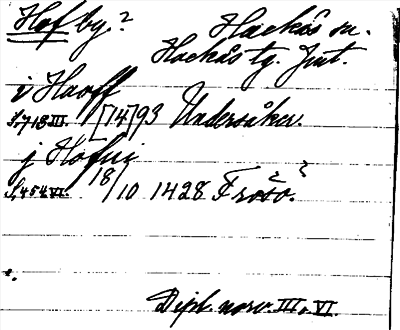 Hof by.? Hackås sn.
Hackås tg. Jmt.
i Haoff
S. 718 III. 1/7 [14]93 Undersåker.
j Hofwi
S. 454 VI. 18/10 1428 Frösö.?
Dipl. norv. III o. VI.